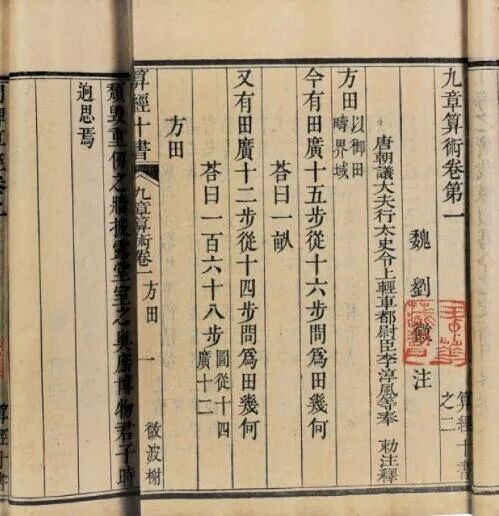 九章算術卷第一
算經十書之二
魏 劉徽 注
唐朝議大夫行太史令上輕車都尉臣李淳風等奉 勅注釋
方田以御田疇界域
今有田廣十五步從十六步問為田幾何
荅曰一畝
又有田廣十二步從十四步問為田幾何
荅曰一百六十八步圖從十四廣十二
方田
算經十書 九章算術卷一 方田 一 微波榭
頹毀重仞之牆披露堂室之奧庶博物君子時
迥思焉
算經十書